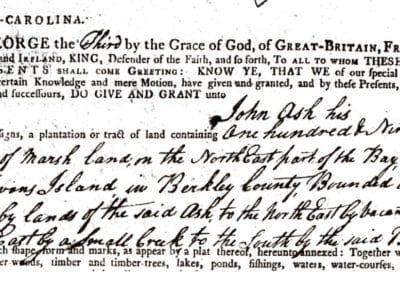 -CAROLINA.
EORGE the Third by the Grace of God, of GREAT-BRITAIN, FR
and IRELAND, KING, Defender of the Faith, and so forth, To ALL TO WHOM THESE
SENTS SHALL COME GREETING: KNOW YE, THAT WE of our special
certain Knowledge and mere Motion, have given and granted, and by these Presents,
and successours, DO GIVE AND GRANT unto
John Ash his
signs, a plantation or tract of land containing One hundred & Nin
of Marsh land, on the North East part of the Bay
Island in Berkley County Bounded
by lands of the said Ash, to the North East by Vacan
East by a Small Creek to the South by the said B
ch shape, form and marks, as appear by a plat thereof, hereunto annexed: Together w
er-woods, timber and timber-trees, lakes, ponds, fishings, waters, water-courses,